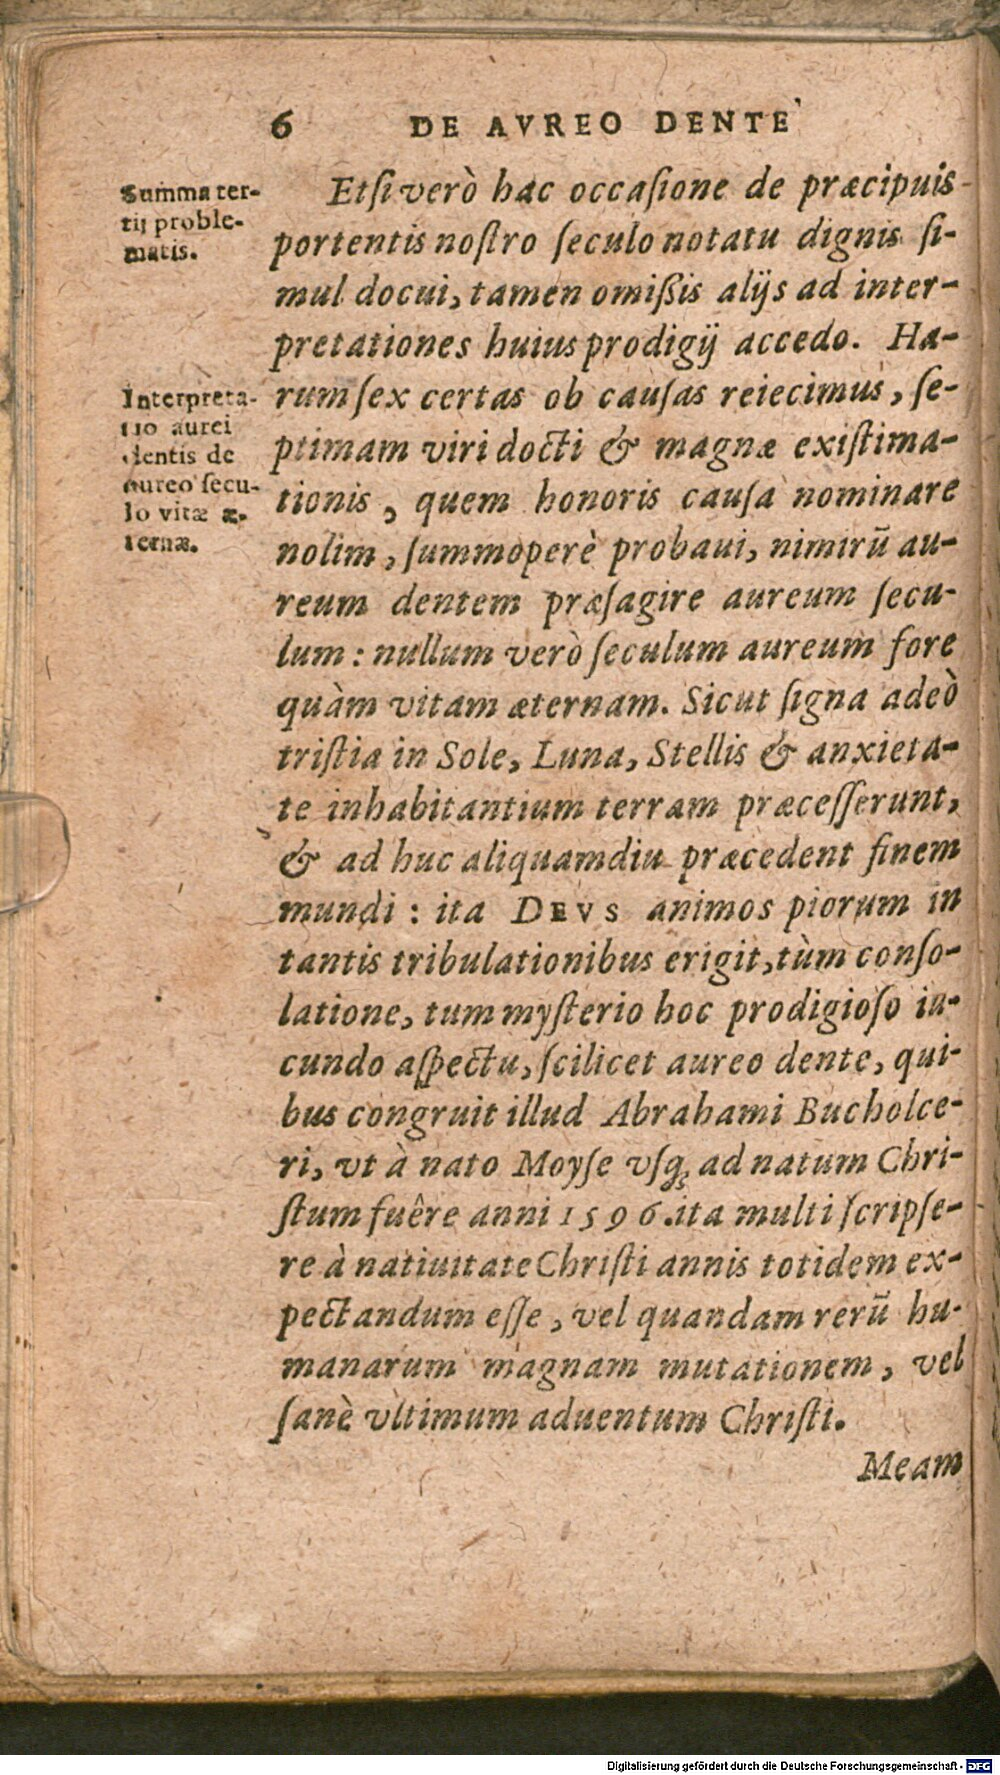 6 DE AVREO DENTE
Summa ter-
tij proble-
matis.
Etſi verò hac occaſione de præcipuis
portentis noſtro ſeculo notatu dignis ſi-
mul docui, tamen omißis alijs ad inter-
pretationes huius prodigij accedo. Ha-
Interpreta-
tio aurei
dentis de
aureo ſecu-
lo vitæ æ-
ternæ.
rum ſex certas ob cauſas reiecimus, ſe-
ptimam viri docti & magnæ exiſtima-
tionis, quem honoris cauſa nominare
nolim, ſummoperè probaui, nimirũ au-
reum dentem præſagire aureum ſecu-
lum: nullum verò ſeculum aureum fore
quàm vitam æternam. Sicut ſigna adeò
triſtia in Sole, Luna, Stellis & anxieta-
te inhabitantium terram præceſſerunt,
& ad huc aliquamdiu præcedent finem
mundi: ita DEVS animos piorum in
tantis tribulationibus erigit, tùm conſo-
latione, tum myſterio hoc prodigioſo iu-
cundo aſpectu, ſcilicet aureo dente, qui-
bus congruit illud Abrahami Bucholce-
ri, vt à nato Moyſe vſq; ad natum Chri-
ſtum fuêre anni 1596. ita multi ſcripſe-
re à natiuitate Chriſti annis totidem ex-
pectandum eſſe, vel quandam rerũ hu-
manarum magnam mutationem, vel
ſanè vltimum aduentum Chriſti.
Meam
Digitalisierung gefördert durch die Deutsche Forschungsgemeinschaft - DFG